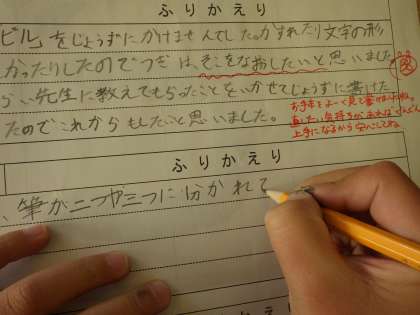 ふりかえり
ビル」をじょうずにかけませんでしたかすれたり文字の形
かったりしたのでつぎは、そこをなおしたいと思いました
らい先生に教えてもらったことをいかせてじょうずに書けた
たのでこれからもしたいと思いました。
お手本をよーく見て書け
直したい気持ちがあれば
上手になるから安心してね
ふりかえり
、筆が二つや三つに分かれて